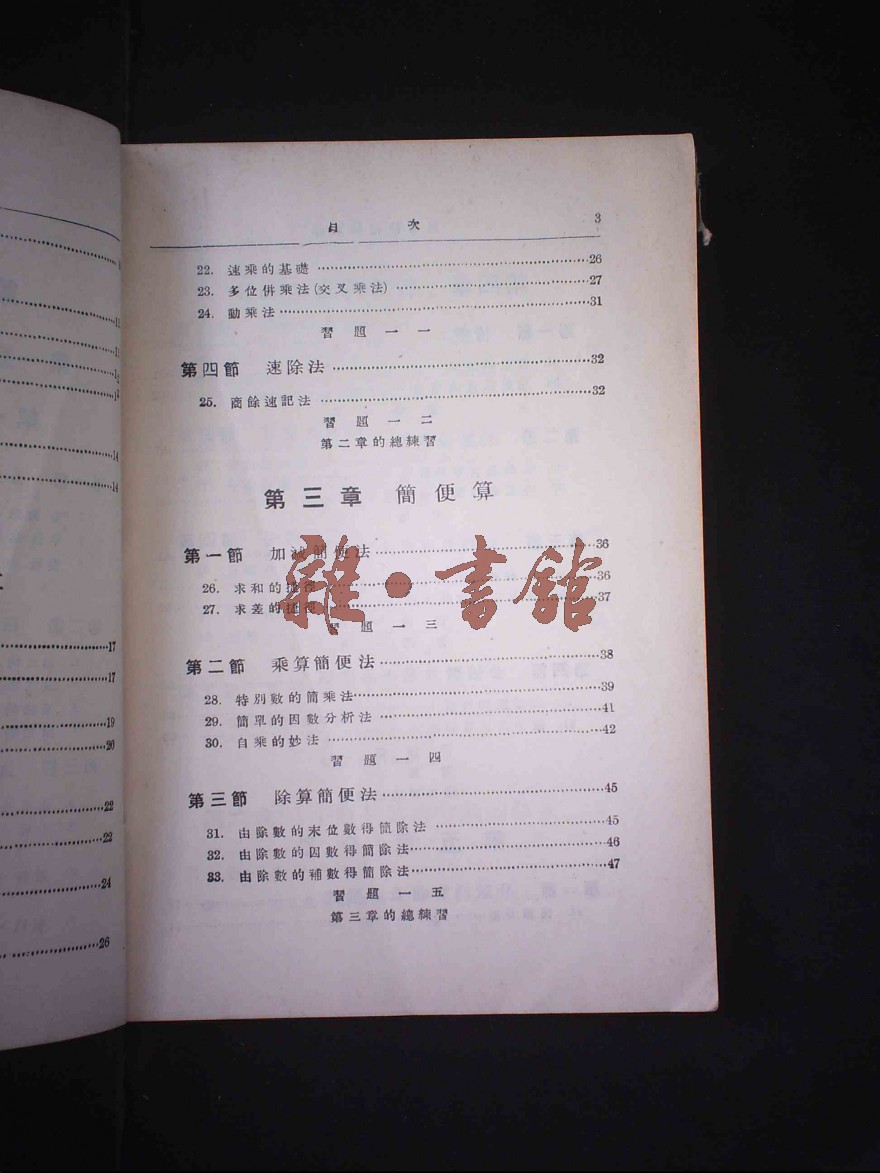 目次 3
22. 速乘的基礎 26
23. 多位併乘法(交叉乘法) 27
24. 動乘法 31
習題一一
第四節 速除法 32
25. 商餘速記法 32
習題一二
第二章的總練習
第三章 簡便算
第一節 加減簡便法 36
26. 求和的捷徑 36
27. 求差的捷徑 37
習題一三
雜·書館
第二節 乘算簡便法 38
28. 特別數的簡乘法 39
29. 簡單的因數分析法 41
30. 自乘的妙法 42
習題一四
第三節 除算簡便法 45
31. 由除數的末位數得簡除法 45
32. 由除數的因數得簡除法 46
33. 由除數的補數得簡除法 47
習題一五
第三章的總練習
14
14
17
17
19
20
22
22
24
26